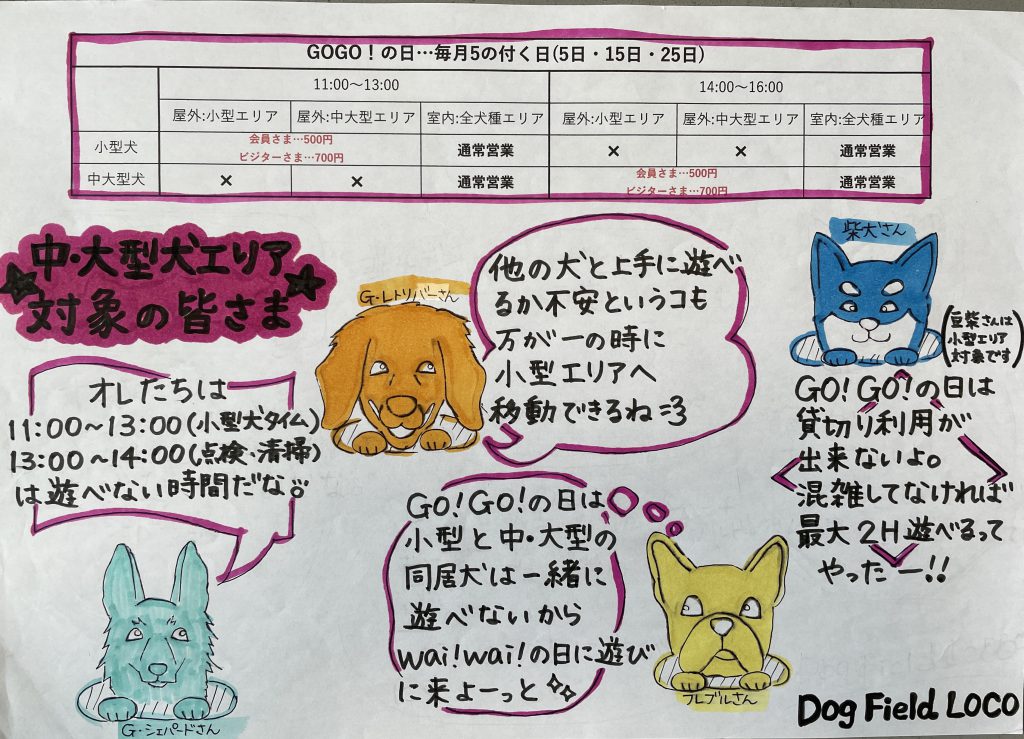 GOGO！の日…毎月5の付く日(5日・15日・25日)
11:00～13:00 14:00～16:00
屋外:小型エリア 屋外:中大型エリア 室内:全犬種エリア 屋外:小型エリア 屋外:中大型エリア 室内:全犬種エリア
小型犬 会員さま…500円 ビジターさま…700円 通常営業 × × 通常営業
中大型犬 × × 通常営業 会員さま…500円 ビジターさま…700円 通常営業
中・大型犬エリア
対象の皆さま
オレたちは
11:00～13:00(小型犬タイム)
13:00～14:00(点検、清掃)
は遊べない時間だな。
G・シェパードさん
G・レトリバーさん
他の犬と上手に遊べ
るか不安というコも
万が一の時に
小型エリアへ
移動できるね
GO!GO!の日は
小型と中・大型の
同居犬は一緒に
遊べないから
wai!wai!の日に遊び
に来よーっと
フレブルさん
柴犬さん
(豆柴さんは
小型エリア
対象です)
GO!GO!の日は
貸切り利用が
出来ないよ。
混雑してなければ
最大2H遊べるって
やったー!!
Dog Field LOCO